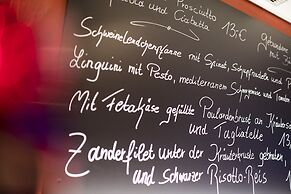 Prosciutto
Rucola und Ciabatta 13,-€ Gebratene
mit
Schweinelendchenpfanne mit Spinat, Schupfnudeln und
Linguini mit Pesto, mediterranem Schafskäse und Tomaten
Mit Fetakäse gefüllte Poulardenbrust an Kräuter
und Tagliatelle 13,
Zanderfilet unter der Kräuterkruste gebraten,
und Schwarzer Risotto-Reis 1